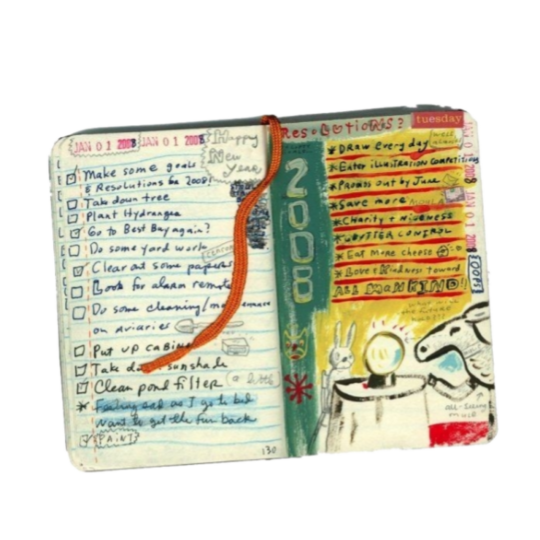 JAN 01 2008 JAN 01 2008
Happy
New
Year
Make some goals
& Resolutions for 2008!
Take down tree
Plant Hydrangea
Go to Best Buy again?
Do some yard work
Clear out some papers
Look for alarm remote
Do some cleaning/
on Aviaries
Put up cabinet
Take down sunshade
Clean pond filter
Feeling sad as I go to bed
Want to get the fun back
PAINT
130
Resolutions?
tuesday
2008
*Draw every day
*Enter illustration competitions
*Promos out by June
*Save more
*Charity + Kindness
*Eat more cheese
*Love & Kindness toward
ALL MANKIND!
JAN 01 2008
OOPS
all-seeing
mule